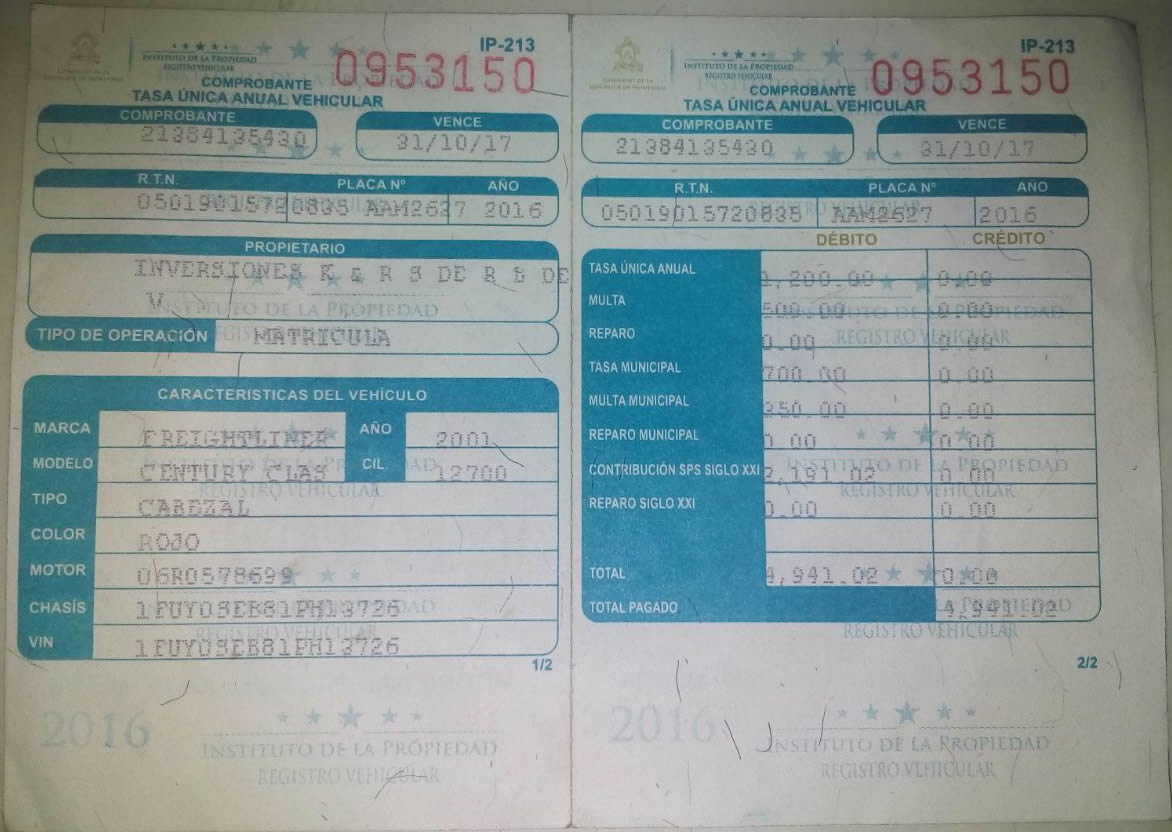 IP-213
INSTITUTO DE LA PROPIEDAD
REGISTRO VEHICULAR
0953150
COMPROBANTE
TASA ÚNICA ANUAL VEHICULAR
COMPROBANTE VENCE
21384135430 31/10/17
R.T.N. PLACA Nº AÑO
05019015720835 AAM2627 2016
PROPIETARIO
INVERSIONES K & R S DE R L DE
V
TIPO DE OPERACIÓN MATRICULA
CARACTERISTICAS DEL VEHÍCULO
MARCA FREIGHTLINER AÑO 2001
MODELO CENTURY CLAS CIL. 12700
TIPO CABEZAL
COLOR ROJO
MOTOR 06R0578699
CHASÍS 1FUYOSEB81PH13726
VIN 1FUYOSEB81PH13726
1/2
2016
INSTITUTO DE LA PROPIEDAD
REGISTRO VEHICULAR
IP-213
INSTITUTO DE LA PROPIEDAD
REGISTRO VEHICULAR
0953150
COMPROBANTE
TASA ÚNICA ANUAL VEHICULAR
COMPROBANTE VENCE
21384135430 31/10/17
R.T.N. PLACA Nº AÑO
05019015720835 AAM2627 2016
DÉBITO CRÉDITO
TASA ÚNICA ANUAL ,200.00 0.00
MULTA 500.00 0.00
REPARO 0.00 0.00
TASA MUNICIPAL 700.00 0.00
MULTA MUNICIPAL 350.00 0.00
REPARO MUNICIPAL 0.00 0.00
CONTRIBUCIÓN SPS SIGLO XXI 2,191.02 0.00
REPARO SIGLO XXI 0.00 0.00
TOTAL 4,941.02 0.00
TOTAL PAGADO 4,941.02
2/2
2016
INSTITUTO DE LA PROPIEDAD
REGISTRO VEHICULAR